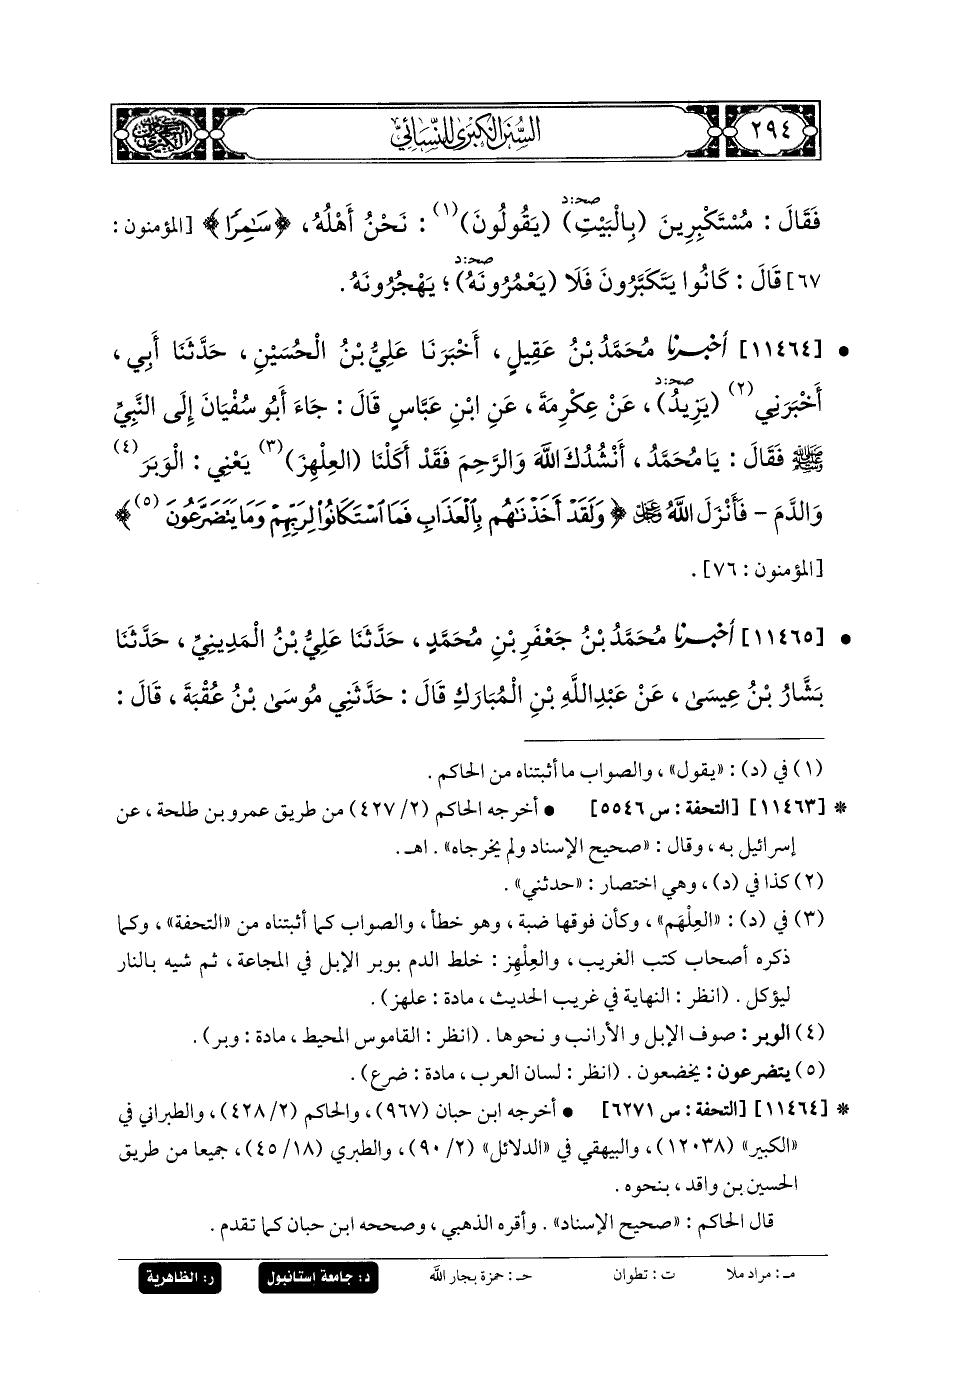 ٢٩٤
السُّنَنُ الكِبْرَىٰ لِلنَّسَائِيِّ
فَقَالَ : مُسْتَكْبِرِينَ (بِالْبَيْتِ) صحـ:د (يَقُولُونَ)(١) : نَحْنُ أَهْلُهُ، ﴿سَٰمِرًا﴾ [المؤمنون :
٦٧] قَالَ : كَانُوا يَتَكَبَّرُونَ فَلَا (يَعْمُرُونَهُ) صحـ:د ؛ يَهْجُرُونَهُ .
• [١١٤٦٤] أَخْبَرَنَا مُحَمَّدُ بْنُ عَقِيلٍ ، أَخْبَرَنَا عَلِيُّ بْنُ الْحُسَيْنِ ، حَدَّثَنَا أَبِي ،
أَخْبَرَنِي(٢) (يَزِيدُ) صحـ:د ، عَنْ عِكْرِمَةَ ، عَنِ ابْنِ عَبَّاسٍ قَالَ : جَاءَ أَبُو سُفْيَانَ إِلَى النَّبِيِّ
ﷺ فَقَالَ : يَا مُحَمَّدُ ، أَنْشُدُكَ اللَّهَ وَالرَّحِمَ فَقَدْ أَكَلْنَا (العِلْهِزَ)(٣) يَعْنِي : الْوَبَرَ(٤)
وَالدَّمَ – فَأَنْزَلَ اللَّهُ ﷿ ﴿وَلَقَدْ أَخَذْنَٰهُم بِٱلْعَذَابِ فَمَا ٱسْتَكَانُوا۟ لِرَبِّهِمْ وَمَا يَتَضَرَّعُونَ(٥)﴾
[المؤمنون : ٧٦] .
• [١١٤٦٥] أَخْبَرَنَا مُحَمَّدُ بْنُ جَعْفَرِ بْنِ مُحَمَّدٍ ، حَدَّثَنَا عَلِيُّ بْنُ الْمَدِينِيِّ ، حَدَّثَنَا
بَشَّارُ بْنُ عِيسَىٰ ، عَنْ عَبْدِ اللَّهِ بْنِ الْمُبَارَكِ قَالَ : حَدَّثَنِي مُوسَىٰ بْنُ عُقْبَةَ ، قَالَ :
(١) في (د) : «يقول» ، والصواب ما أثبتناه من الحاكم .
* [١١٤٦٣] [التحفة : س ٥٥٤٦] • أخرجه الحاكم (٢/ ٤٢٧) من طريق عمرو بن طلحة ، عن
إسرائيل به ، وقال : «صحيح الإسناد ولم يخرجاه» . اهـ .
(٢) كذا في (د) ، وهي اختصار : «حدثني» .
(٣) في (د) : «العِلْهَم» ، وكأن فوقها ضبة ، وهو خطأ ، والصواب كما أثبتناه من «التحفة» ، وكما
ذكره أصحاب كتب الغريب ، والعِلْهِز : خلط الدم بوبر الإبل في المجاعة ، ثم شيه بالنار
ليؤكل . (انظر : النهاية في غريب الحديث ، مادة : علهز) .
(٤) الوبر : صوف الإبل و الأرانب و نحوها . (انظر : القاموس المحيط ، مادة : وبر) .
(٥) يتضرعون : يخضعون . (انظر : لسان العرب ، مادة : ضرع) .
* [١١٤٦٤] [التحفة : س ٦٢٧١] • أخرجه ابن حبان (٩٦٧) ، والحاكم (٢/ ٤٢٨) ، والطبراني في
«الكبير» (١٢٠٣٨) ، والبيهقي في «الدلائل» (٢/ ٩٠) ، والطبري (١٨/ ٤٥) ، جميعا من طريق
الحسين بن واقد ، بنحوه .
قال الحاكم : «صحيح الإسناد» . وأقره الذهبي ، وصححه ابن حبان كما تقدم .
مـ : مراد ملا ت : تطوان حـ : حمزة بجار الله د : جامعة إستانبول ر : الظاهرية